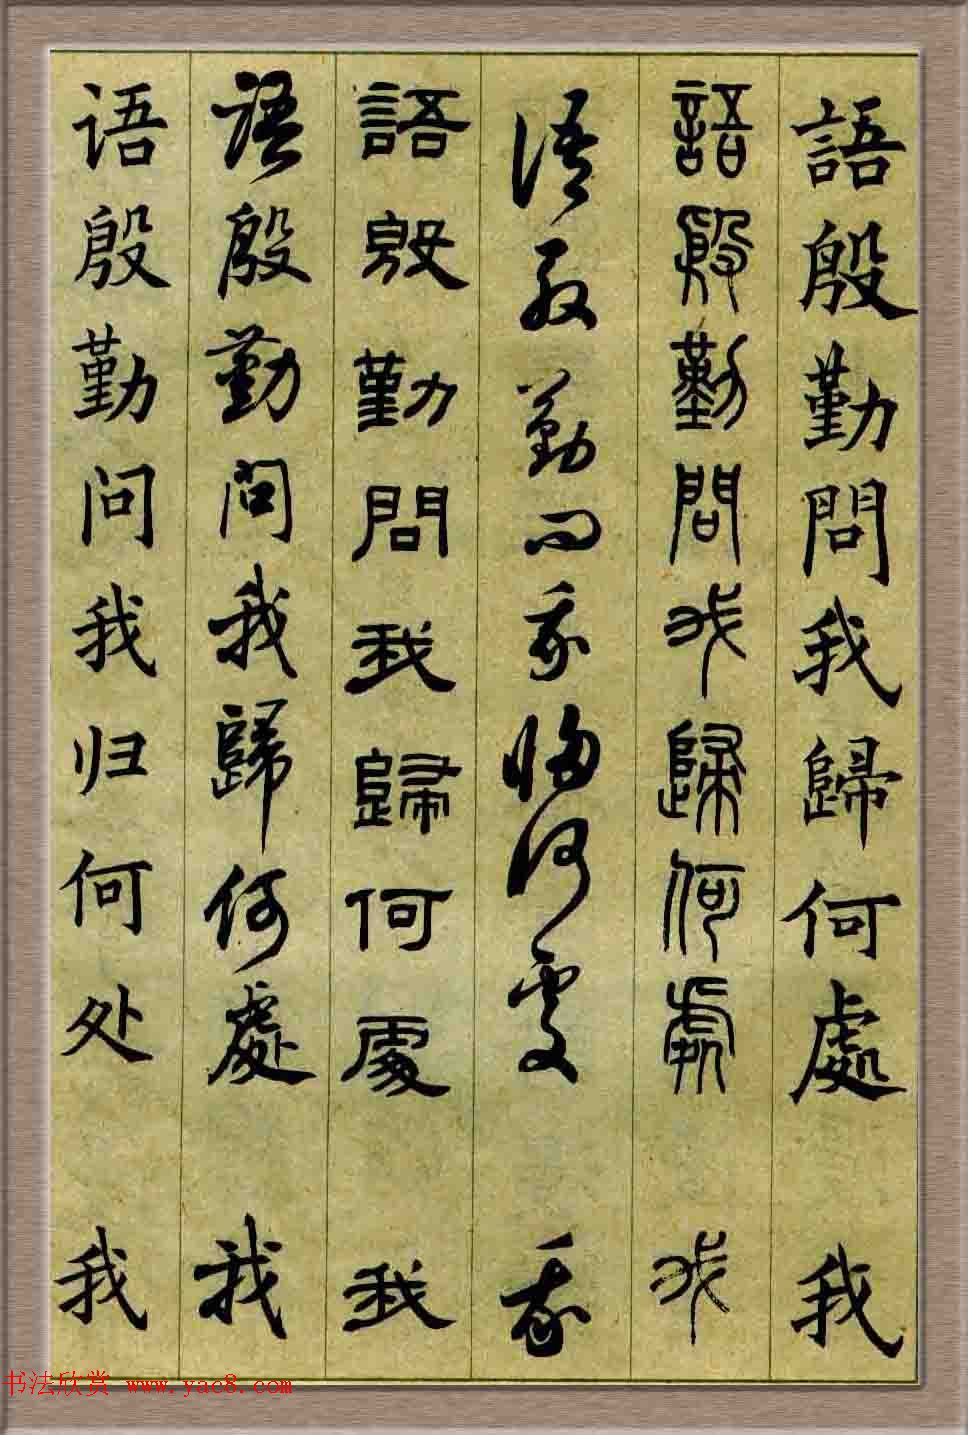 語殷勤問我歸何處 我
語殷勤問我歸何處 我
語殷勤問我歸何處 我
語殷勤問我歸何處 我
語殷勤问我歸何處 我
语殷勤问我归何处 我
书法欣赏 www.yac8.com